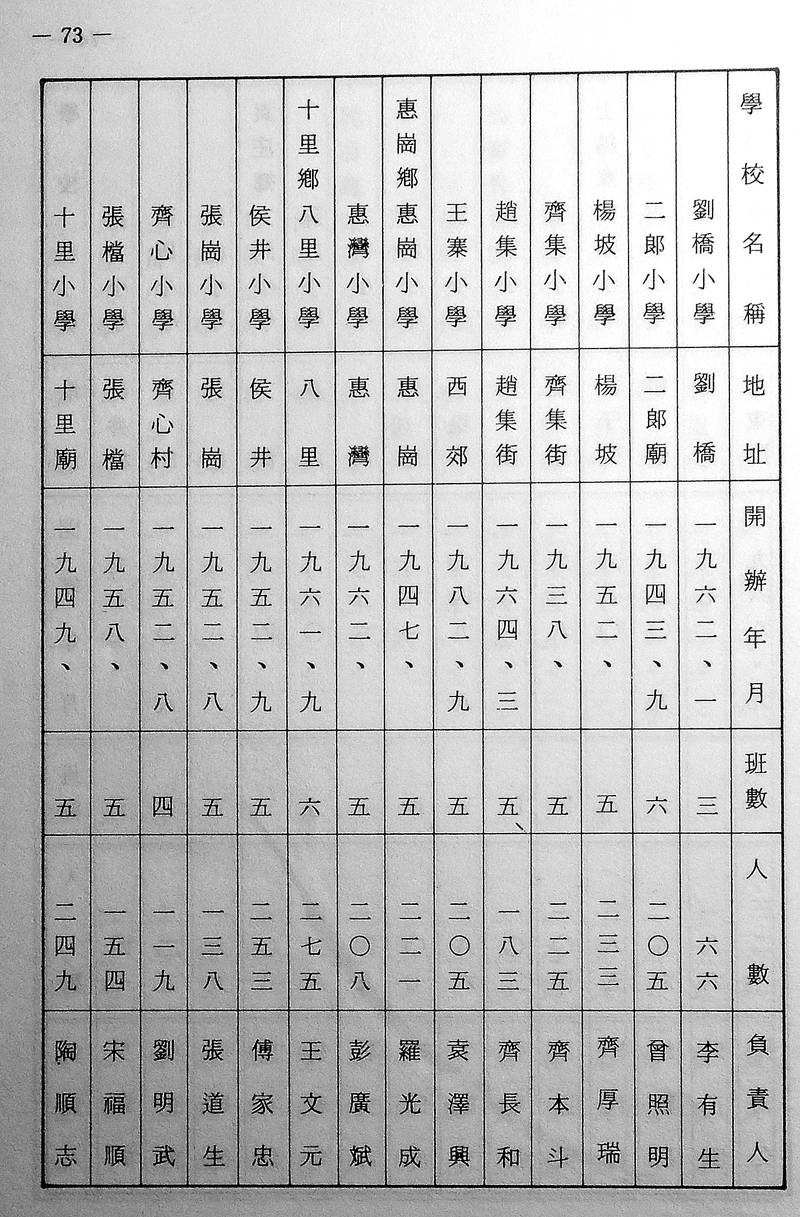 — 73 —
學校名稱 地址 開辦年月 班數 人數 負責人
劉橋小學 劉橋 一九六二、一 三 六六 李有生
二郎小學 二郎廟 一九四三、九 六 二〇五 曾照明
楊坡小學 楊坡 一九五二、 五 二三三 齊厚瑞
齊集小學 齊集街 一九三八、 五 二二五 齊本斗
趙集小學 趙集街 一九六四、三 五 一八三 齊長和
王寨小學 西郊 一九八二、九 五 二〇五 袁澤興
惠崗鄉惠崗小學 惠崗 一九四七、 五 二二一 羅光成
惠灣小學 惠灣 一九六二、 五 二〇八 彭廣斌
十里鄉八里小學 八里 一九六一、九 六 二七五 王文元
侯井小學 侯井 一九五二、九 五 二五三 傅家忠
張崗小學 張崗 一九五二、八 五 一三八 張道生
齊心小學 齊心村 一九五二、八 四 一一九 劉明武
張檔小學 張檔 一九五八、 五 一五四 宋福順
十里小學 十里廟 一九四九、 五 二四九 陶順志